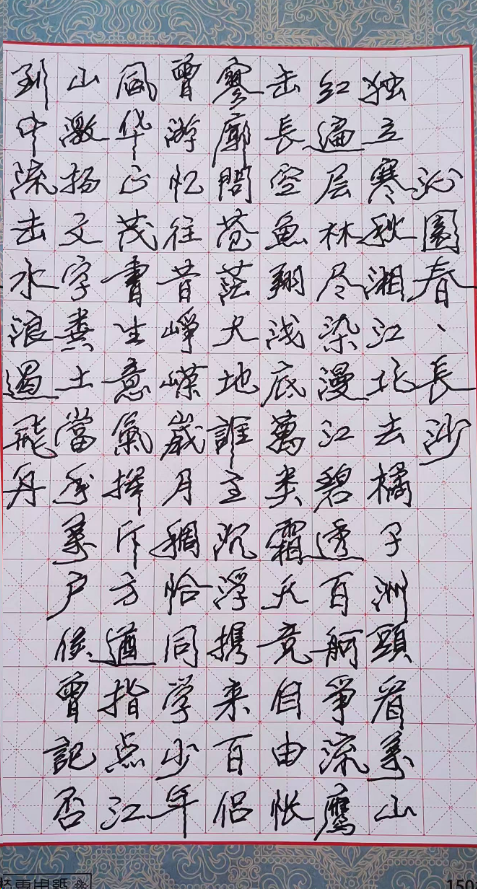 沁園春、長沙
独立寒秋湘江北去橘子洲頭看萬山
红遍层林尽染漫江碧透百舸爭流鹰
击長空鱼翔浅底萬类霜天竞自由怅
寥廓問苍茫大地誰主沉浮携来百侣
曾游忆往昔崢嵘歲月稠恰同学少年
風华正茂書生意氣挥斥方遒指点江
山激扬文字粪土當年萬户侯曾記否
到中流击水浪遏飛舟
150